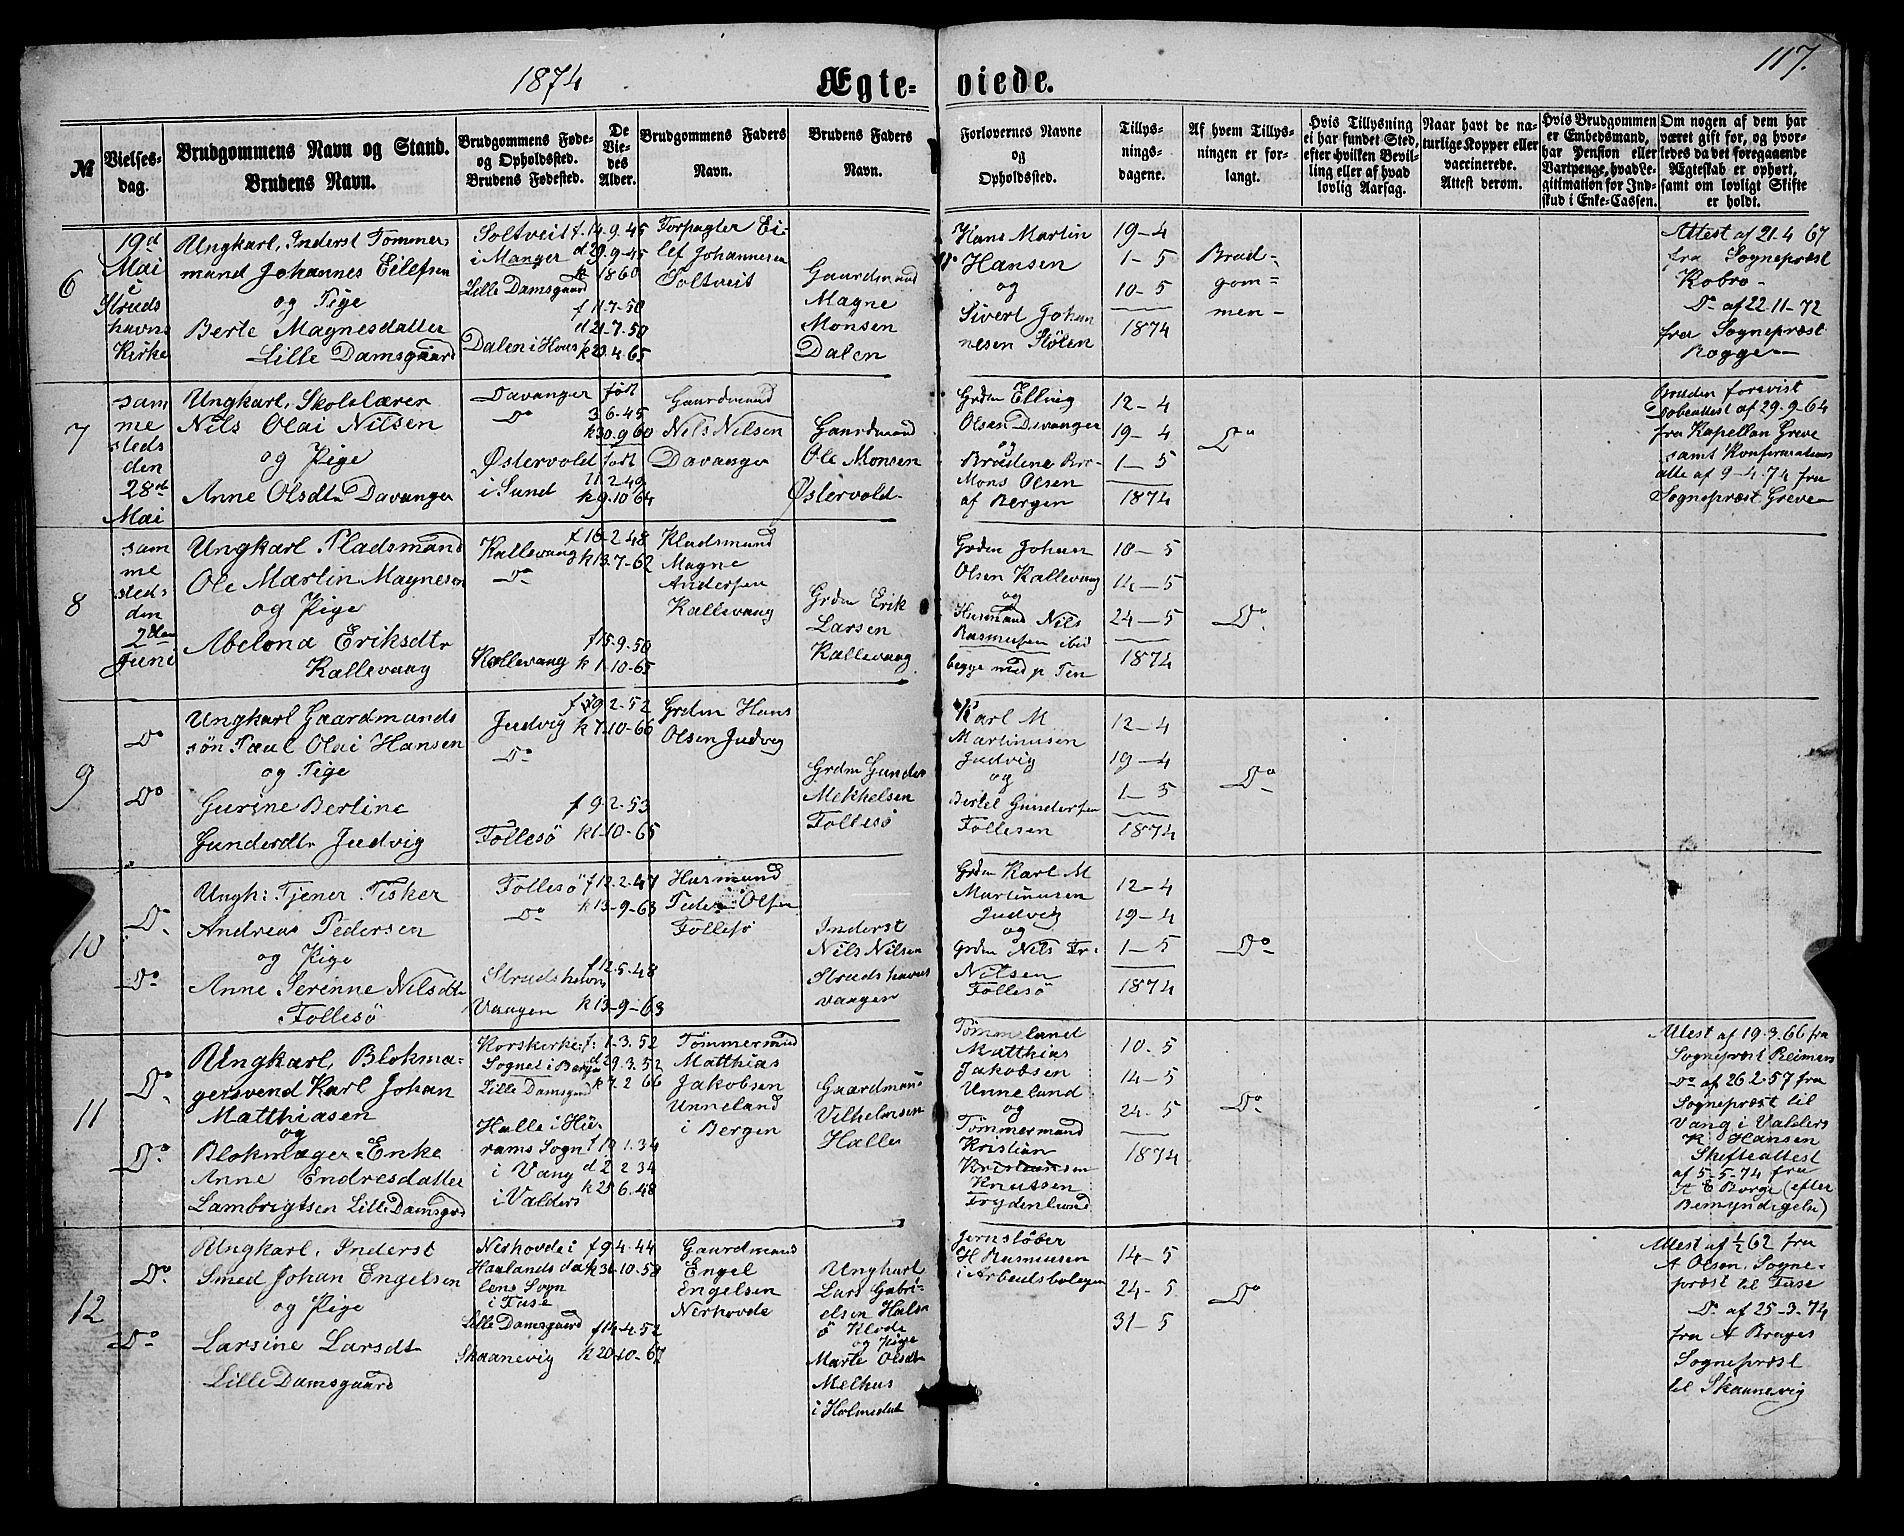 1874
Ægte-
viede.
117.
№
Vielses-
dag.
Brudgommens Navn og Stand.
Brudens Navn.
Brudgommens Føde-
og Opholdssted.
Brudens Fødested.
De
Vie-
des
Alder.
Brudgommens Faders
Navn.
Brudens Faders
Navn.
Forlovernes Navne
og
Opholdssted.
Tillys-
nings-
dagene.
Af hvem Tillys-
ningen er for-
langt.
Hvis Tillysning
ei har fundet Sted,
efter hvilken Bevil-
ling eller af hvad
lovlig Aarsag.
Naar havt de na-
turlige Kopper eller
vaccinerede.
Attest derom.
Hvis Brudgommen
er Embedsmand,
har Pension eller
Vartpenge, hvad Le-
gitimation for Ind-
skud i Enke-Cassen.
Om nogen af dem har
været gift før, og hvor-
ledes da det foregaaende
Ægteskab er ophørt,
samt om lovligt Skifte
er holdt.
6
19d
Mai
i
Struds
havns
Kirke
Ungkarl, Inderst Tømmer
mand Johannes Eilefsen
og Pige
Berte Magnesdatter
Lille Damsgaard
Soltveit
i Manger
Lille Damsgaard
Dalen i Hous
f. 14.9.45
d 29.9.45
k 1860
f 11.7.50
d 21.7.50
k 23.4.65
Forpagter Ei-
lef Johannesen
Soltveit
Gaardmand
Magne
Monsen
Dalen
Hans Martin
Hansen
og
Sivert Johan
nesen Stølen
19-4
1-5
10-5
1874
Brud-
gom-
men-
Attest af 21-4 67
fra Sognepræst
Kobro-
Do af 22-11-72
fra Sognepræst
Rogge-
7
sam
me
steds
den
28de
Mai
Ungkarl, Skolelærer
Nils Olai Nilsen
og Pige
Anne Olsdtr Davanger
Davanger
Do
Østervold
i Sund
født
3 6-45
k 30.9 60
født
11.2-49
k 9.10 64
Gaardmand
Nils Nilsen
Davanger
Gaardmand
Ole Monsen
Østervold
Grdm Elling
Olsen Davanger
og
Brudens Bro-
Mons Olsen
af Bergen
12-4
19-4
1-5
1874
Do
Bruden forevist
Dobeattest af 29-9-64
fra Kapellan Greve
samt Konfirmations
atte af 9-4-74 fra
Sognepræst Greve-
8
sam
me
steds
den
2den
Juni
Ungkarl Pladsmand
Ole Martin Magnesen
og Pige
Abelona Eriksdtr
Kallevaag
Kallevaag
Do
Kallevaag
f 16-2-48
k 13-7-62
f 15-9-50
k 1-10-65
Kladsmand
Magne
Andersen
Kallevaag
Grdm Erik
Larsen
Kallevaag
Grdm Johan
Olsen Kallevaag
og
Husmand Nils
Rasmussen ibid
begge med p Pen
10-5
14-5
24-5
1874
Do
9
Do
Do
Ungkarl Gaardmands
søn Paul Olai Hansen
og Pige
Gurine Bertine
Gunderdtr Judvig
Judvig
Do
Follesö
9 2-52
k 7.10-66
f 9 2-53
k 1-10-65
Grdm Hans
Olsen Judvig
Grdm Gunder
Mekkelsen
Follesö
Karl M
Martinusen
Judvig
og
Bertel Gundersen
Follesen
12-4
19-4
1-5
1874
Do
10
Do
Do
Ungk: Tjener Fisker
Andreas Pedersen
og Pige
Anne Serinne Nilsdtr
Follesö
Follesö
Do
Strudshavns
Vaagen
f 12-2-47
k 13-9-63
f 12-5-48
k 13-9-63
Husmand
Peder Olsen
Follesö
Inderst
Nils Nilsen
Strudshavns
vaagen
Grdm Karl M
Martinusen
Judvig
og
Grdm Nils Fr.
Nilsen
Follesö
12-4
19-4
1-5
1874
Do
11
Do
Do
Ungkarl, Blokma-
gersvend Karl Johan
Matthiasen
og
Blokmager-Enke
Anne Endresdatter
Lambrigtsen Lille Damsgrd
Korskirke-
Sognet i Bergen
Lille Damsgaard
Halle i Hu-
rams Sogn
i Vang
i Valders
f: 1-3.52
d 29.3.52
k 7.2 66
f 19.1.34
d 2 2 34
k 25 6.48
Tømmermand
Matthias
Jakobsen
Unneland
i Bergen
Gaardmand
Vilhelmsen
Halle
Tømmeland
Matthias
Jakobsen
Unneland
og
Tømmermand
Kristian
Kristiansen
Knutsen
Frydenlund
10-5
14-5
24-5
1874
Do
Attest af 19.3.66 fra
Sognepræst Reimers
Do af 26 2.57 fra
Sognepræst til
Vang i Valders
K Hansen
Skifteattest
af 5-5.74 fra
A E Borge (efter
Bemyndigelse)
12
Do
Do
Ungkarl, Inderst
Smed Johan Engelsen
og Pige
Larsine Larsdtr
Lille Damsgaard
Nerhovde i
Haalandsda
lens Sogn
i Fuse
Lille Damsgaard
Skaanevig
f 9.4-44
k 31-10-58
f 14.4.52
k 20.10-67
Gaardmand
Engel
Engelsen
Nerhovde
Ungkarl
Lars Gabri-
elsen Hals
og Pige
Marte Olsdtr
Melhus
i Holmedal
Jernstøber
H Rasmusen
i Arbeidsboligen
14-5
24-5
31-5
Do
Attest af 1/2 62 fra
A Olsen, Sogne-
præst til Fuse
Do af 25-3.74
fra A Brages
Sognepræst
til Skaanevig